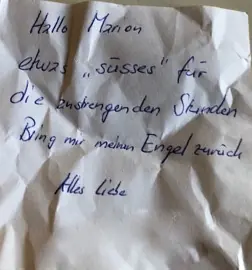 Hallo Marion
etwas „süsses" für
die anstrengenden Stunden
Bring mir meinen Engel zurück
Alles Liebe